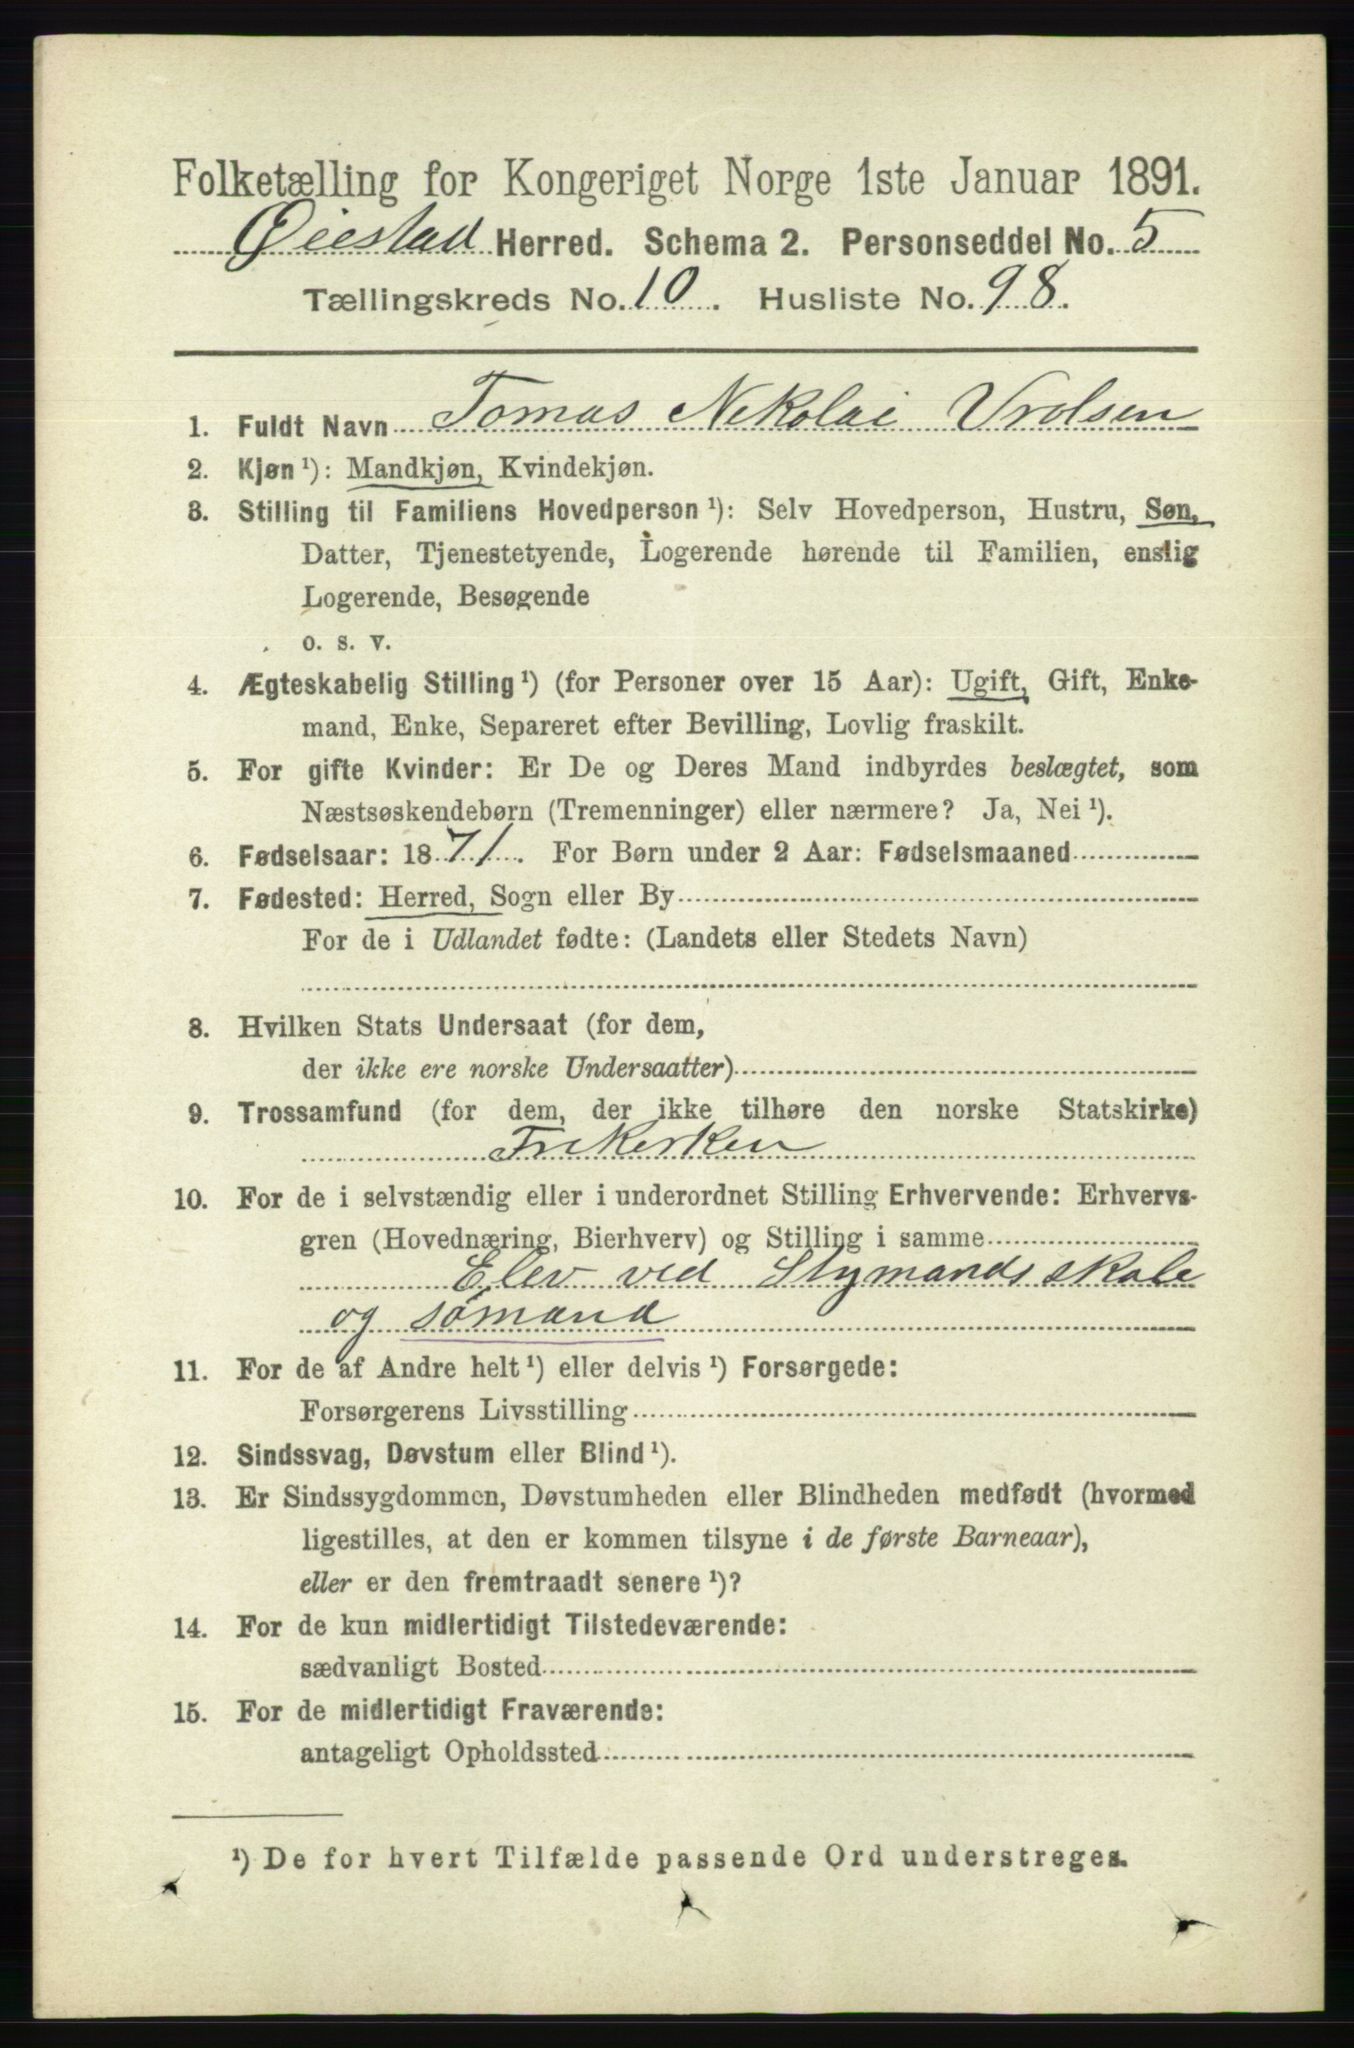 Folketælling for Kongeriget Norge 1ste Januar 1891.
Øiestad Herred. Schema 2. Personseddel No. 5
Tællingskreds No. 10. Husliste No. 98.
1. Fuldt Navn Tomas Nekolai Vrolsen
2. Kjøn ¹): Mandkjøn, Kvindekjøn.
3. Stilling til Familiens Hovedperson ¹): Selv Hovedperson, Hustru, Søn,
Datter, Tjenestetyende, Logerende hørende til Familien, enslig
Logerende, Besøgende
o. s. v.
4. Ægteskabelig Stilling ¹) (for Personer over 15 Aar): Ugift, Gift, Enke-
mand, Enke, Separeret efter Bevilling, Lovlig fraskilt.
5. For gifte Kvinder: Er De og Deres Mand indbyrdes beslægtet, som
Næstsøskendebørn (Tremenninger) eller nærmere? Ja, Nei ¹).
6. Fødselsaar: 1871. For Børn under 2 Aar: Fødselsmaaned
7. Fødested: Herred, Sogn eller By
For de i Udlandet fødte: (Landets eller Stedets Navn)
8. Hvilken Stats Undersaat (for dem,
der ikke ere norske Undersaatter)
9. Trossamfund (for dem, der ikke tilhøre den norske Statskirke)
Frikerken
10. For de i selvstændig eller i underordnet Stilling Erhvervende: Erhvervs-
gren (Hovednæring, Bierhverv) og Stilling i samme
Elev ved Stymands skole
og sømand
11. For de af Andre helt ¹) eller delvis ¹) Forsørgede:
Forsørgerens Livsstilling
12. Sindssvag, Døvstum eller Blind ¹).
13. Er Sindssygdommen, Døvstumheden eller Blindheden medfødt (hvormed
ligestilles, at den er kommen tilsyne i de første Barneaar),
eller er den fremtraadt senere ¹)?
14. For de kun midlertidigt Tilstedeværende:
sædvanligt Bosted
15. For de midlertidigt Fraværende:
antageligt Opholdssted
¹) De for hvert Tilfælde passende Ord understreges.